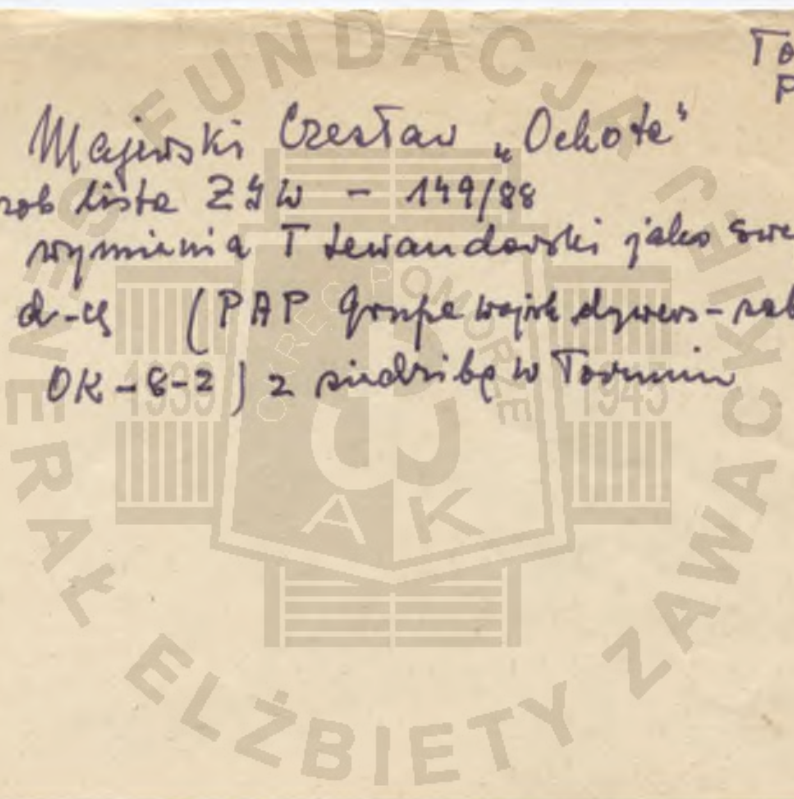 To
P
Majewski Czesław „Ochota"
rob lista ZIW - 149/88
wymienia T Lewandowski jako swe
d-cę (PAP Grupa wojsk dywers-sab
OK-8-2) z siedzibą w Toruniu
FUNDACJA
GENERAŁ ELŻBIETY ZAWACKIEJ
OKRĘG POMORZE
1939 1945
AK